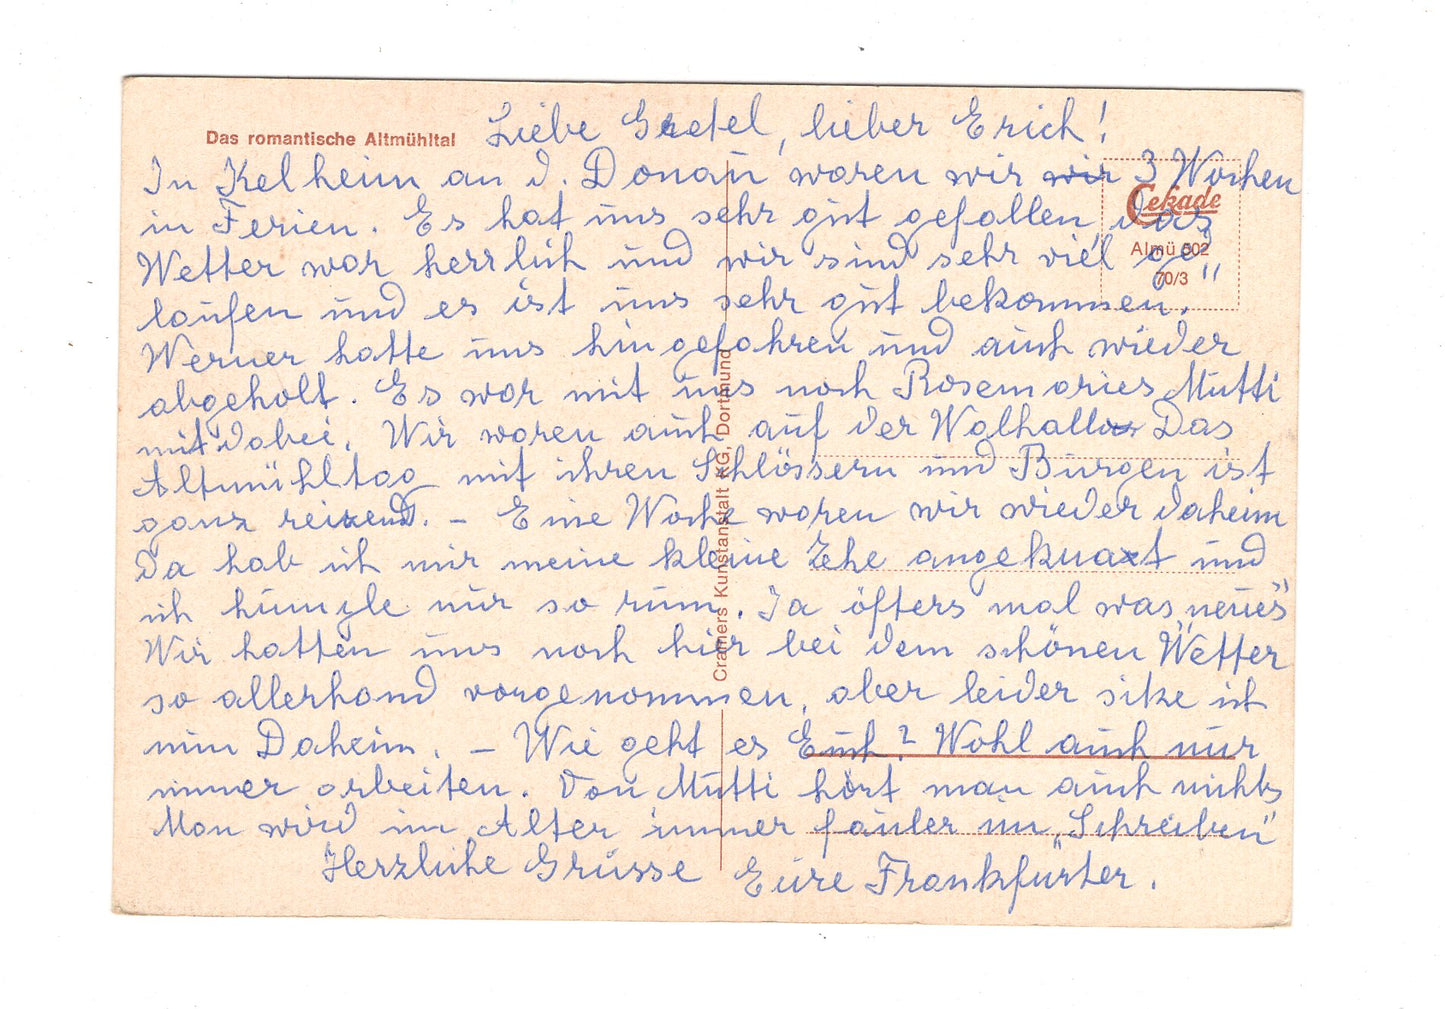 Das romantische Altmühltal
Liebe Gretel, lieber Erich!
In Kelheim an d. Donau waren wir wir 3 Wochen
in Ferien. Es hat uns sehr gut gefallen, das
Wetter war herrlich und wir sind sehr viel ge"
laufen und es ist uns sehr gut bekommen.
Werner hatte uns hingefahren und auch wieder
abgeholt. Es war mit uns noch Rosemaries Mutti
mit dabei. Wir waren auch auf der Walhalla Das
Altmühltag mit ihren Schlössern und Burgen ist
ganz reizend. – Eine Woche waren wir wieder daheim
Da hab ich mir meine kleine Zehe angeknaxt und
ich humple nur so rum. Ja öfters mal was neues"
Wir hatten uns noch hier bei dem schönen Wetter
so allerhand vorgenommen, aber leider sitze ich
nun Daheim. – Wie geht es Euch? Wohl auch nur
immer arbeiten. Von Mutti hört man auch nichts
Man wird im Alter immer fauler im "Schreiben"
Herzliche Grüsse Eure Frankfurter.
Cekade
Almü 602
70/3
Cramers Kunstanstalt KG, Dortmund